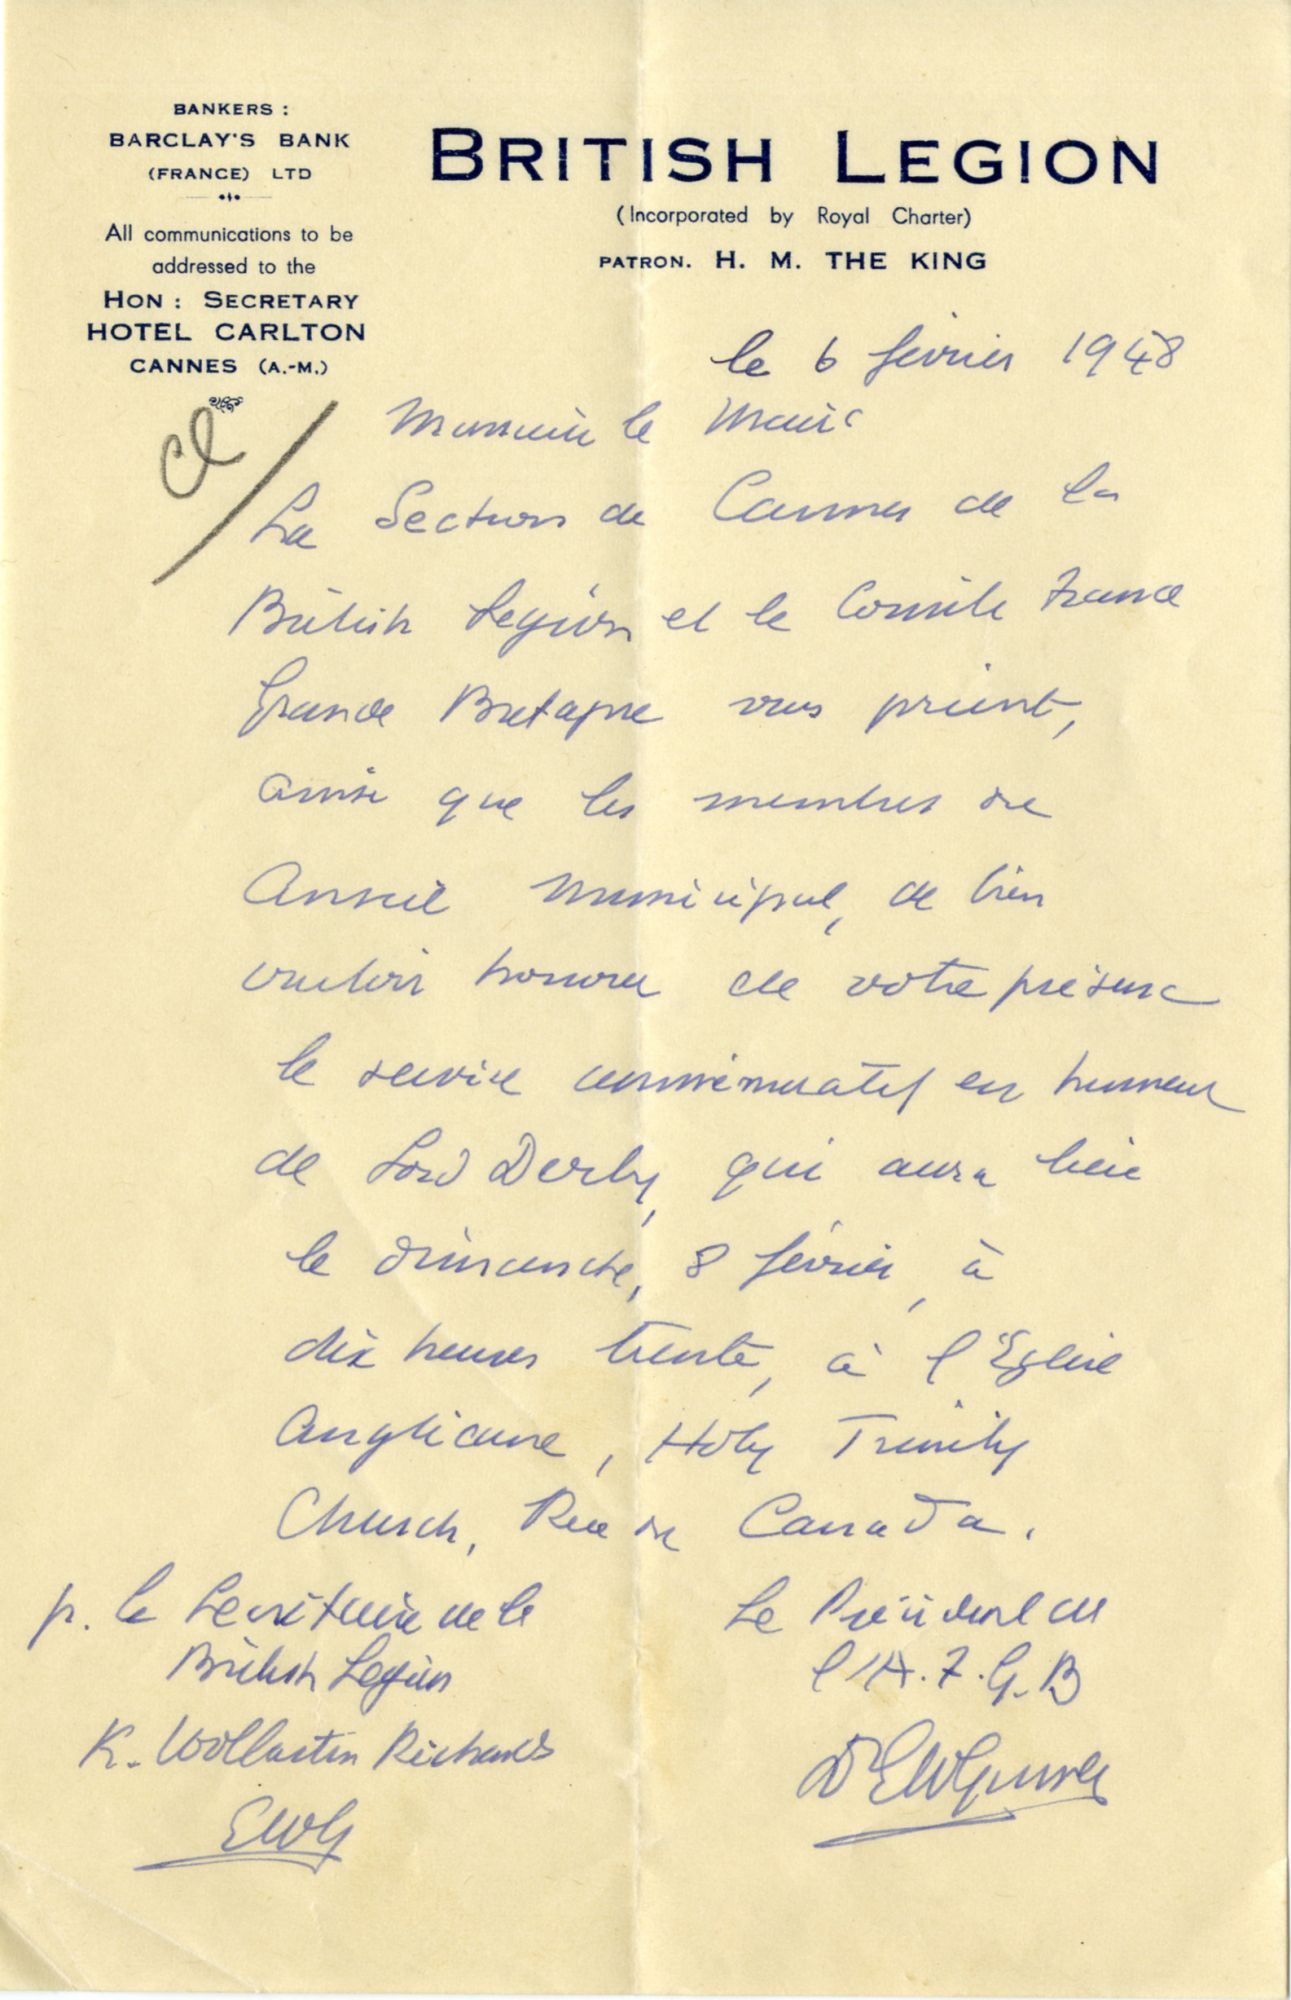 BANKERS :
BARCLAY'S BANK
(FRANCE) LTD
All communications to be
addressed to the
HON : SECRETARY
HOTEL CARLTON
CANNES (A.-M.)
BRITISH LEGION
(Incorporated by Royal Charter)
PATRON. H. M. THE KING
le 6 février 1948
Monsieur le Maire
La Section de Cannes de la
British Legion et le Comité France
Grande Bretagne vous prient,
ainsi que les membres de
Conseil Municipal, de bien
vouloir honorer de votre présence
le service commémoratif en honneur
de Lord Derby, qui aura lieu
le dimanche, 8 février, à
dix heures trente, à l'Eglise
Anglicane, Holy Trinity
Church, Rue de Canada.
p. le Secrétaire de la
British Legion
K. Wollaston Richards
EWG
Le Président de
l'A.F.G.B
Dr EW